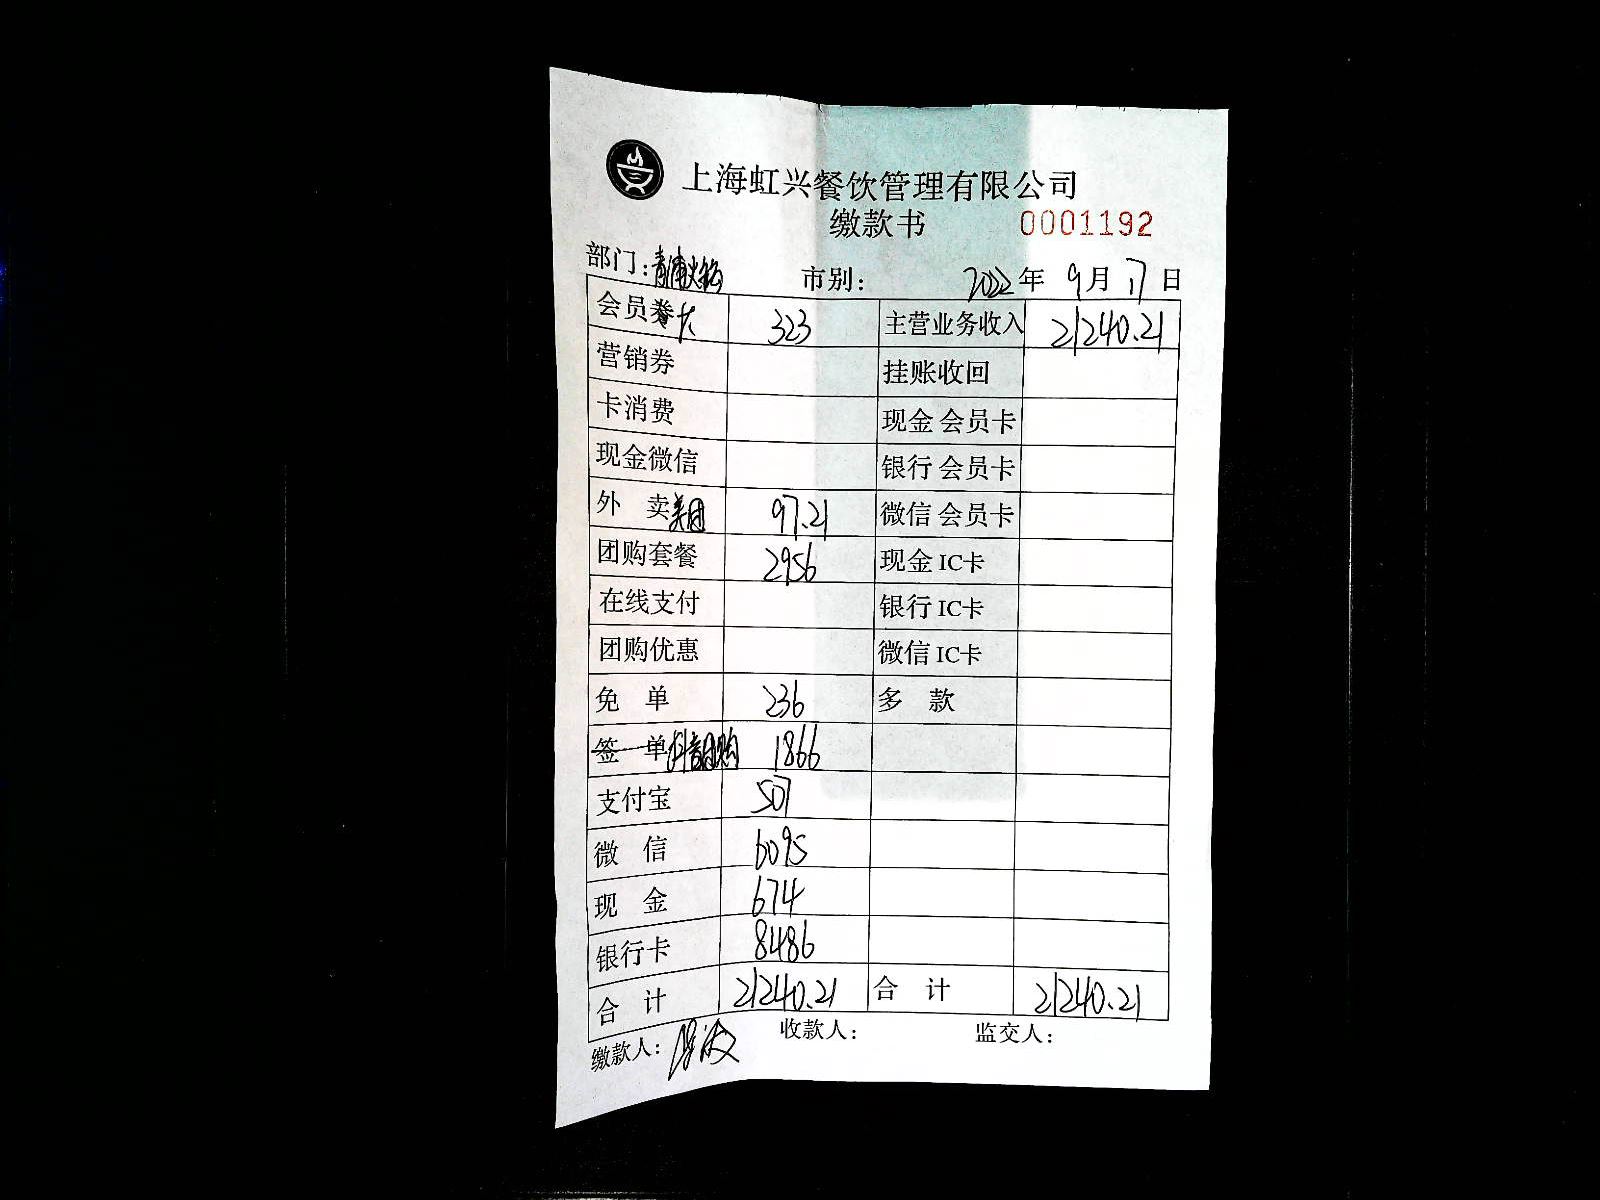 上海虹兴餐饮管理有限公司
缴款书 0001192
部门：青浦火锅 市别： 2022年 9月 17日
会员卡 323 主营业务收入 21240.21
营销券 挂账收回
卡消费 现金 会员卡
现金微信 银行 会员卡
外 卖 美团 97.21 微信 会员卡
团购套餐 2956 现金 IC卡
在线支付 银行 IC卡
团购优惠 微信 IC卡
免 单 236 多 款
签 单 抖音团购 1866
支付宝 507
微 信 6095
现 金 674
银行卡 8486
合 计 21240.21 合 计 21240.21
缴款人： 收款人： 监交人：